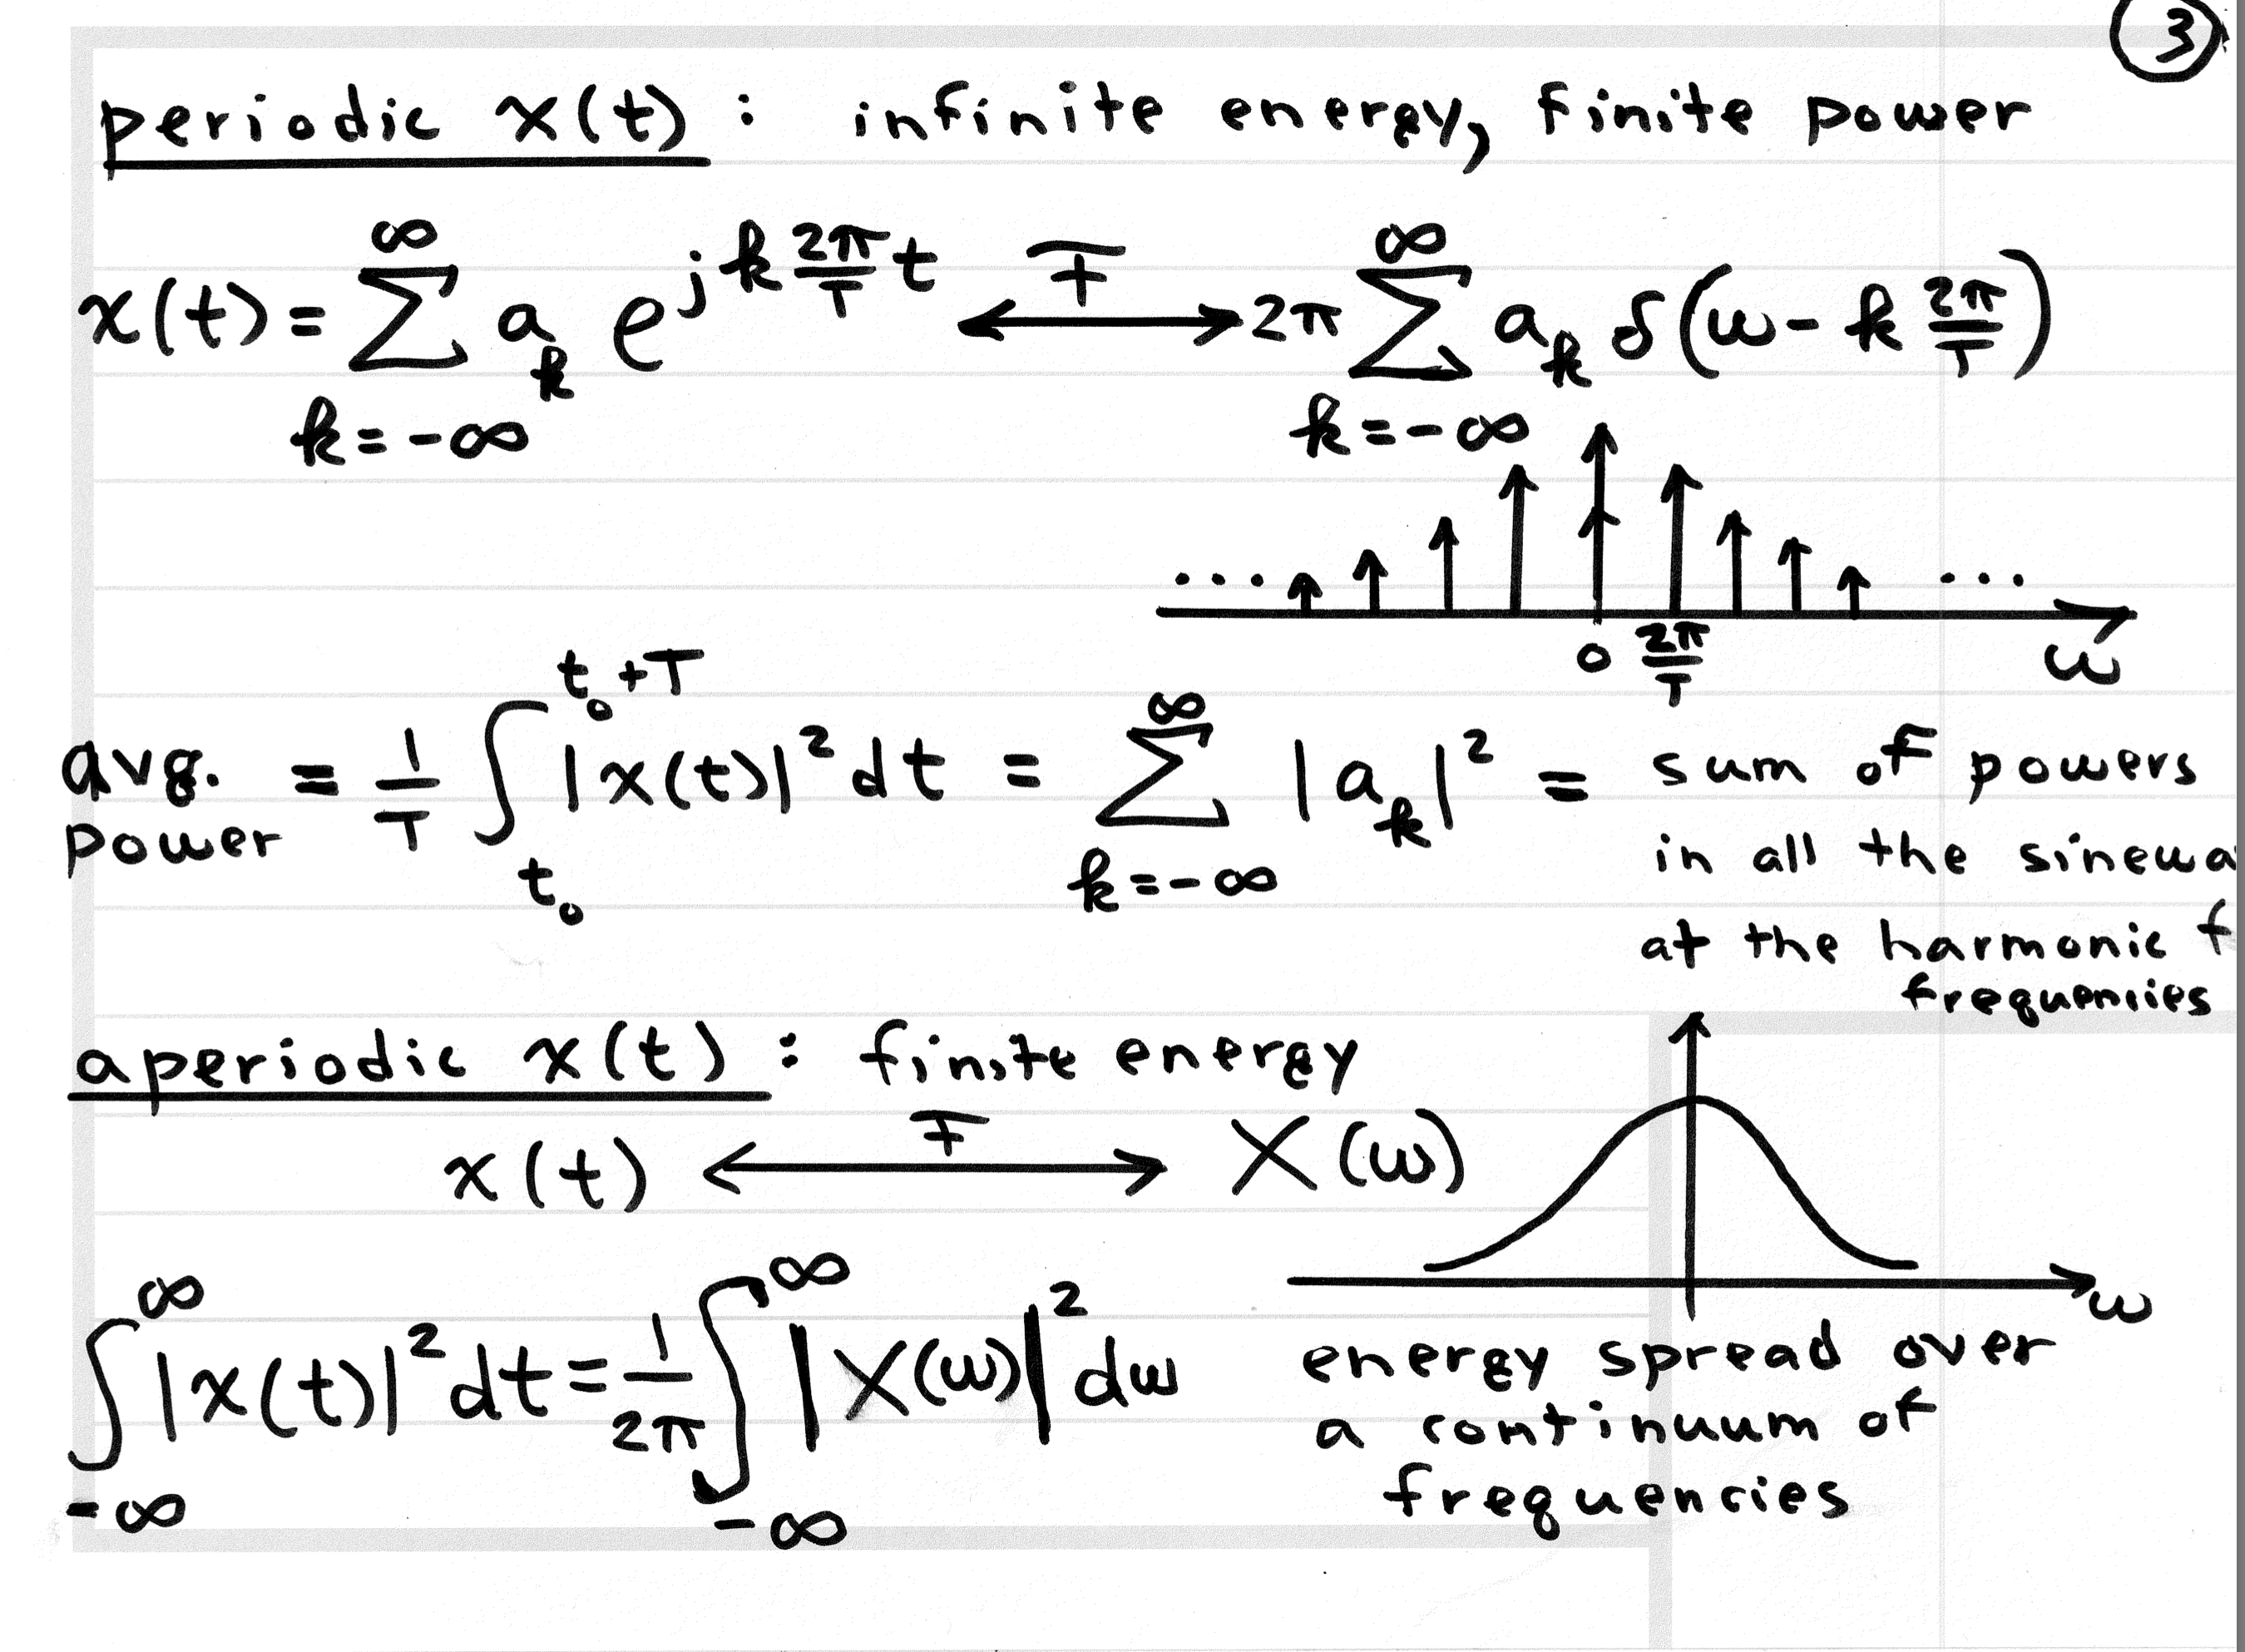 3
periodic x(t) : infinite energy, finite power
x(t) = ∑_{k=-∞}^{∞} a_k e^{jk 2π/T t} ⟷^F 2π ∑_{k=-∞}^{∞} a_k δ(ω - k 2π/T)
... ...
0 2π/T ω
avg. power = 1/T ∫_{t_0}^{t_0+T} |x(t)|² dt = ∑_{k=-∞}^{∞} |a_k|² = sum of powers
in all the sinewa
at the harmonic f
frequencies
aperiodic x(t) : finite energy
x(t) ⟷^F X(ω)
ω
∫_{-∞}^{∞} |x(t)|² dt = 1/2π ∫_{-∞}^{∞} |X(ω)|² dω
energy spread over
a continuum of
frequencies